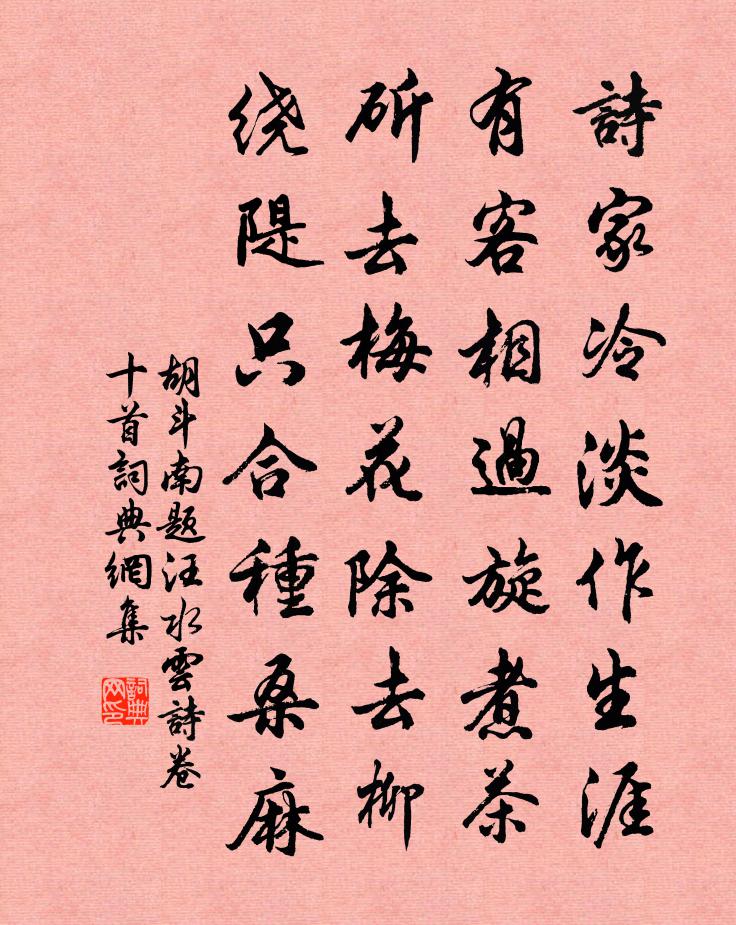 詩家冷淡作生涯
有客相過旋煮茶
斫去梅花除去柳
绕隄只合種桑麻
胡斗南题汪水雲詩卷
十首詞典網集
詞典
网印